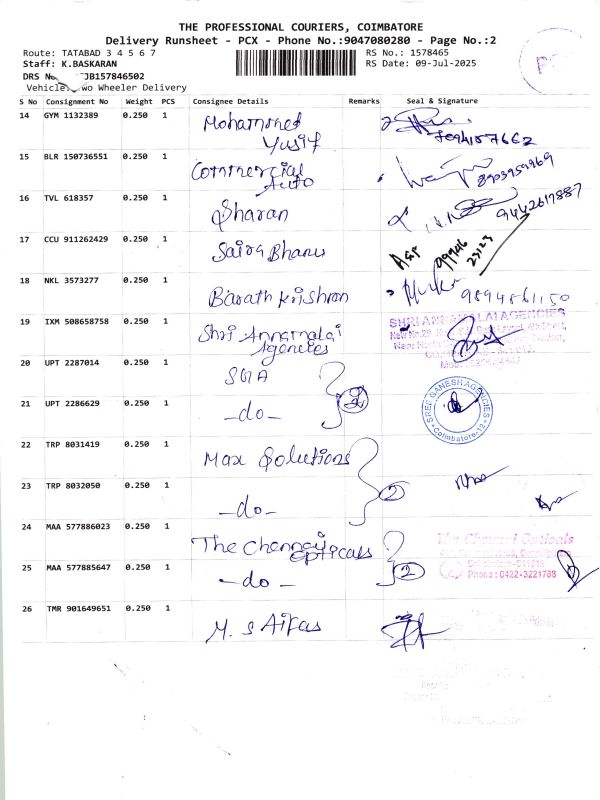 THE PROFESSIONAL COURIERS, COIMBATORE
Delivery Runsheet - PCX - Phone No.:9047080280 - Page No.:2
Route: TATABAD 3 4 5 6 7
RS No.: 1578465
Staff: K.BASKARAN
RS Date: 09-Jul-2025
DRS JB157846502
Vehicle: Two Wheeler Delivery
S No Consignment No Weight PCS Consignee Details Remarks Seal & Signature
14 GYM 1132389 0.250 1 Mohammed Yusif 7094157662
15 BLR 150736551 0.250 1 Commercial Auto 8903959969
16 TVL 618357 0.250 1 Sharan 9442617887
17 CCU 911262429 0.250 1 Saira Bhanu 99946 23123
18 NKL 3573277 0.250 1 Barath Krishnan 9894561150
19 IXM 508658758 0.250 1 Shri Annamalai Agencies
SHRI ANNAMALAI AGENCIES
20 UPT 2287014 0.250 1 SGA 2
21 UPT 2286629 0.250 1 -do-
SREE GANESH AGENCIES
Coimbatore-12
22 TRP 8031419 0.250 1 Max Solutions
23 TRP 8032050 0.250 1 -do- 2
24 MAA 577886023 0.250 1 The Chennai Opticals
The Chennai Opticals
25 MAA 577885647 0.250 1 -do- 2
Phone: 0422-3221788
26 TMR 901649651 0.250 1 M. S